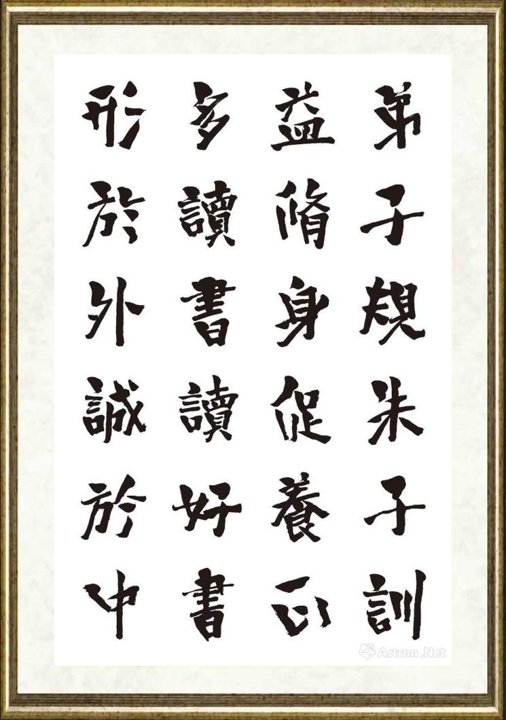 弟子規朱子訓
益脩身促養心
多讀書讀好書
形於外誠於中
Artron.Net